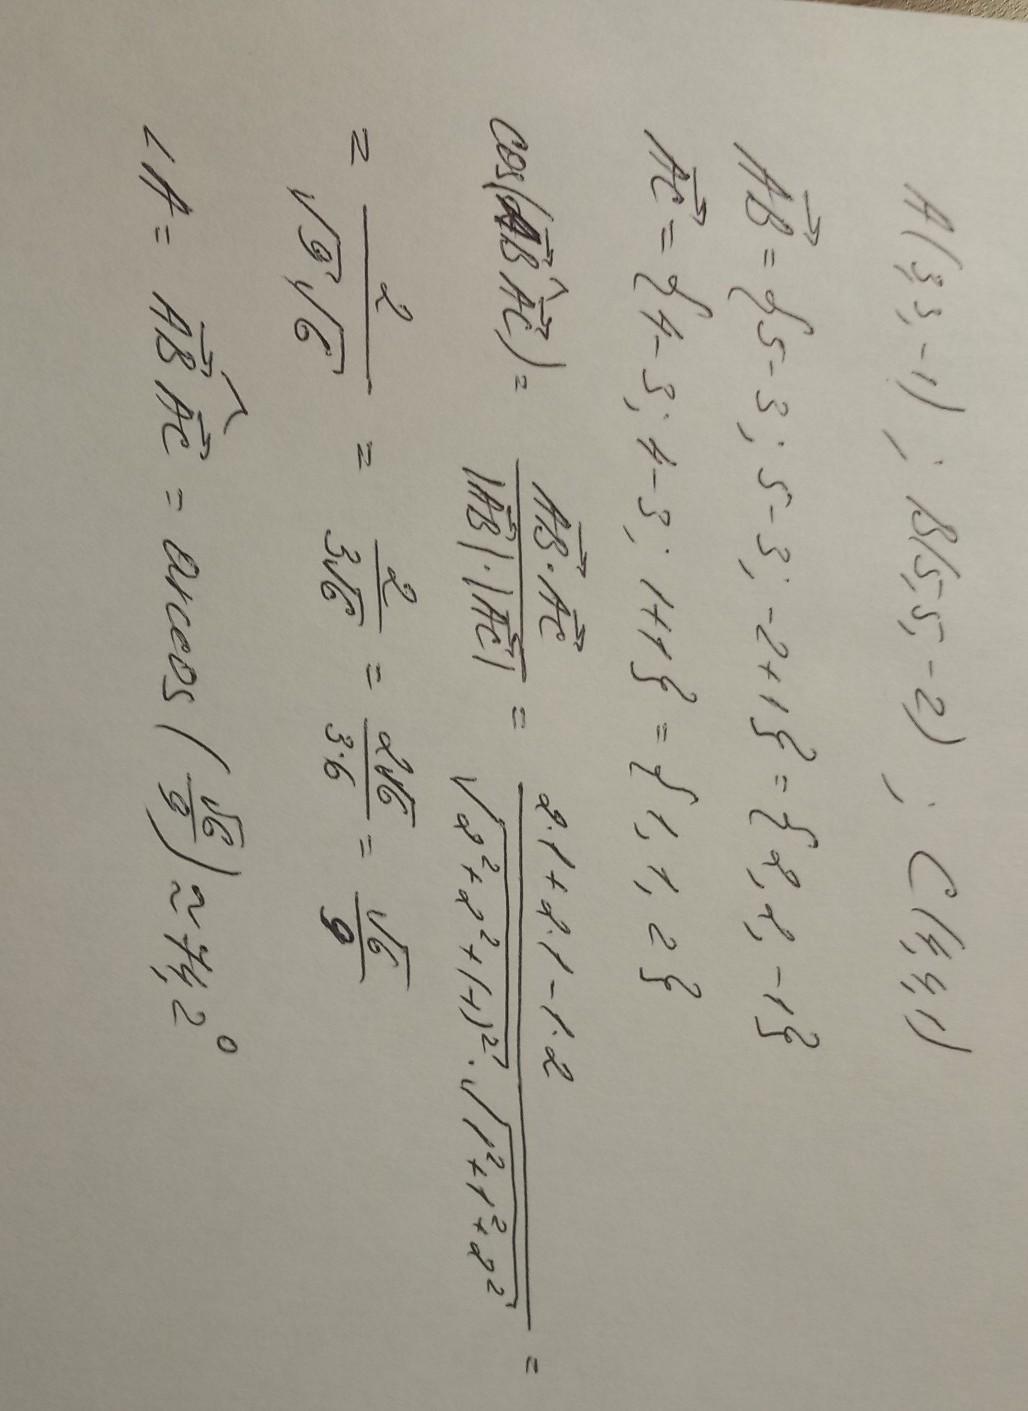 A(3,3,-1); B(5,5,-2); C(4,4,1)
AB→ = {5-3; 5-3; -2+1} = {2, 2, -1}
AC→ = {4-3; 4-3; 1+1} = {1, 1, 2}
cos(AB→ ^ AC→) = (AB→ · AC→)/(|AB→| · |AC→|) = (2·1+2·1-1·2)/(√(2²+2²+(-1)²) · √(1²+1²+2²)) =
= 2/(√9 √6) = 2/(3√6) = 2√6/(3·6) = √6/9
∠A = AB→ ^ AC→ = arccos(√6/9) ≈ 74,2°